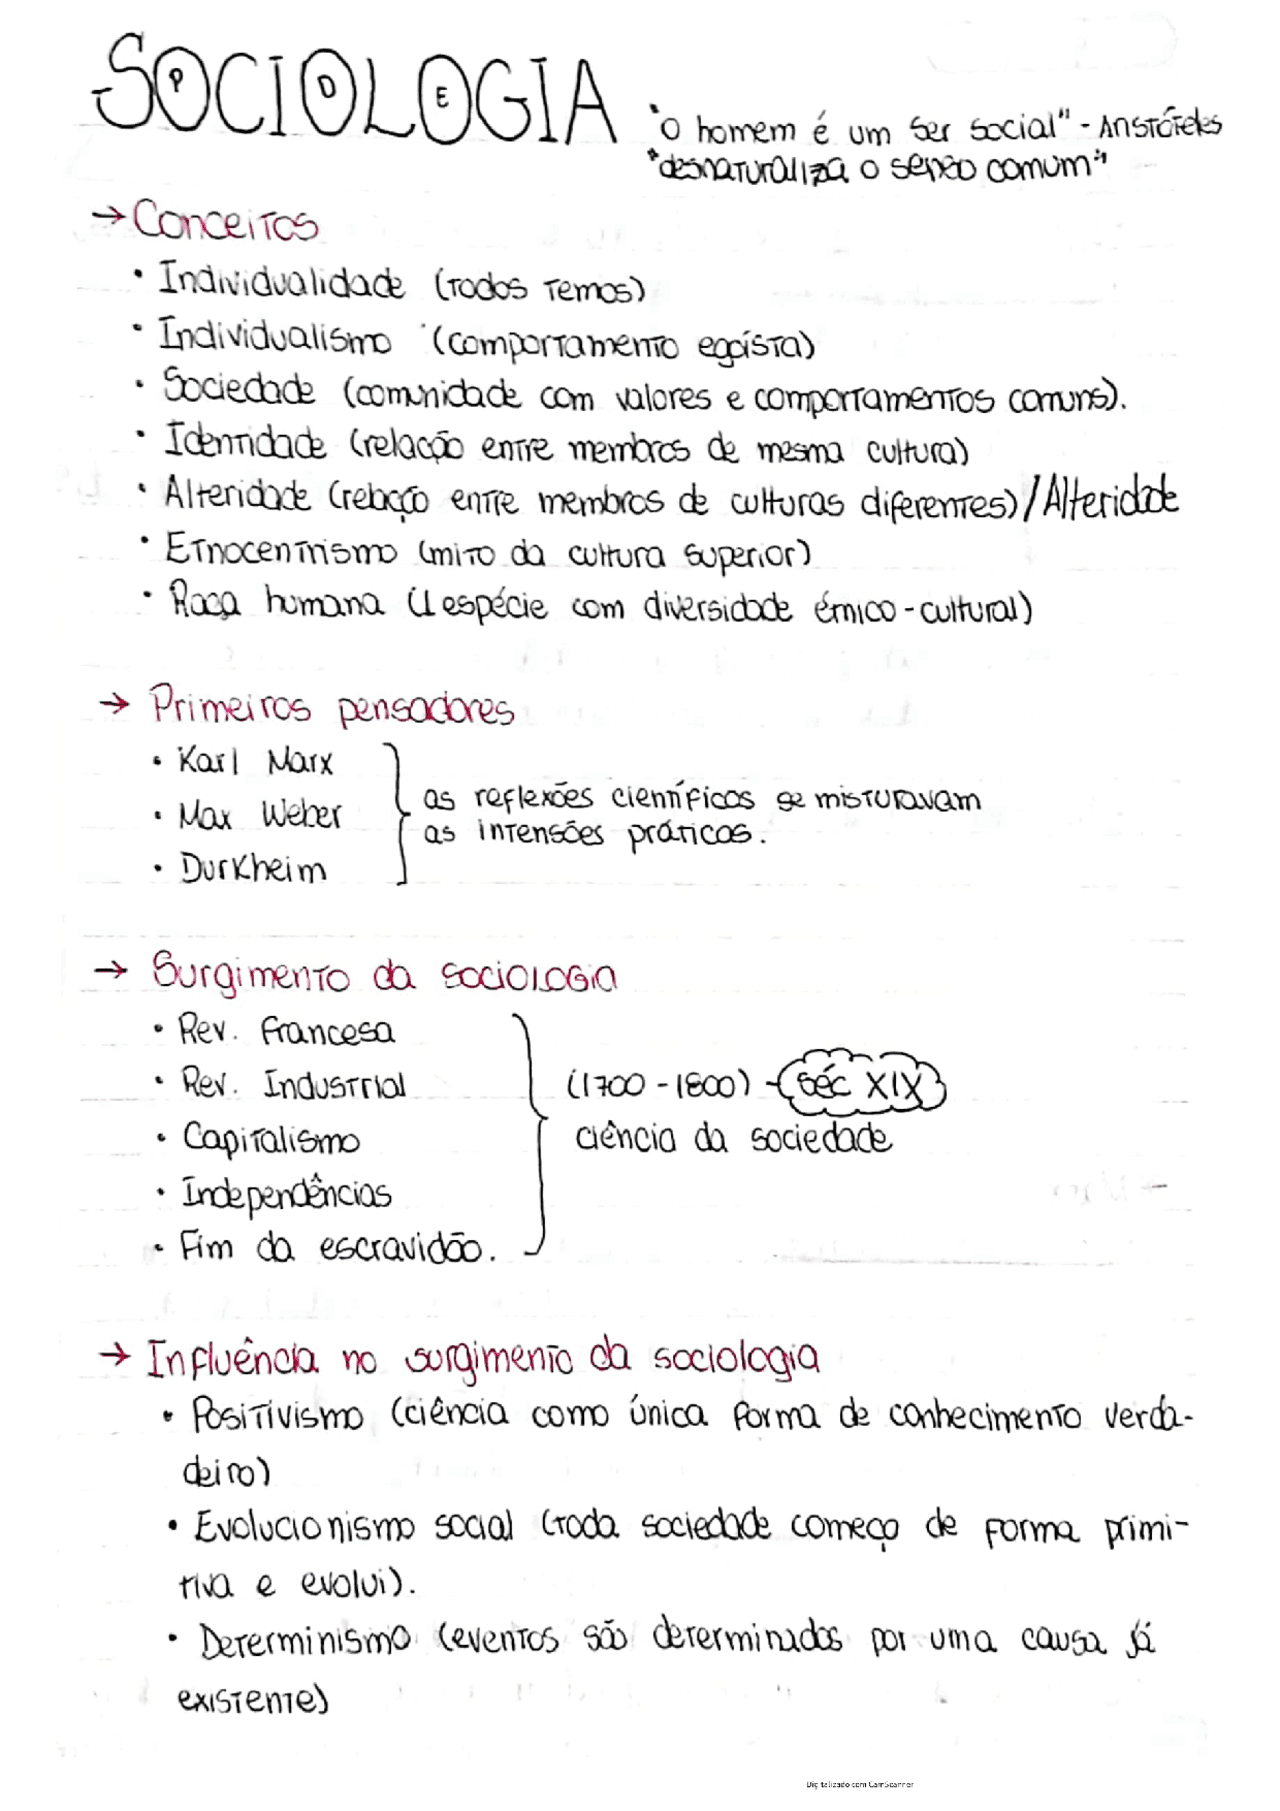 SOCIOLOGIA
P D E
"o homem é um ser social" - Aristóteles
"desnaturaliza o senso comum"
→ Conceitos
• Individualidade (todos temos)
• Individualismo (comportamento egoísta)
• Sociedade (comunidade com valores e comportamentos comuns).
• Identidade (relação entre membros de mesma cultura)
• Alteridade (relação entre membros de culturas diferentes) / Alteridade
• Etnocentrismo (mito da cultura superior)
• Raça humana (1 espécie com diversidade étnico-cultural)
→ Primeiros pensadores
• Karl Marx
• Max Weber
• Durkheim
as reflexões científicas se misturavam
as intensões práticas.
→ Surgimento da sociologia
• Rev. Francesa
• Rev. Industrial
• Capitalismo
• Independências
• Fim da escravidão.
(1700 - 1800) - séc XIX
ciência da sociedade
→ Influência no surgimento da sociologia
• Positivismo (ciência como única forma de conhecimento verda-
deiro)
• Evolucionismo social (toda sociedade começa de forma primi-
tiva e evolui).
• Determinismo (eventos são determinados por uma causa já
existente)
Digitalizado com CamScanner